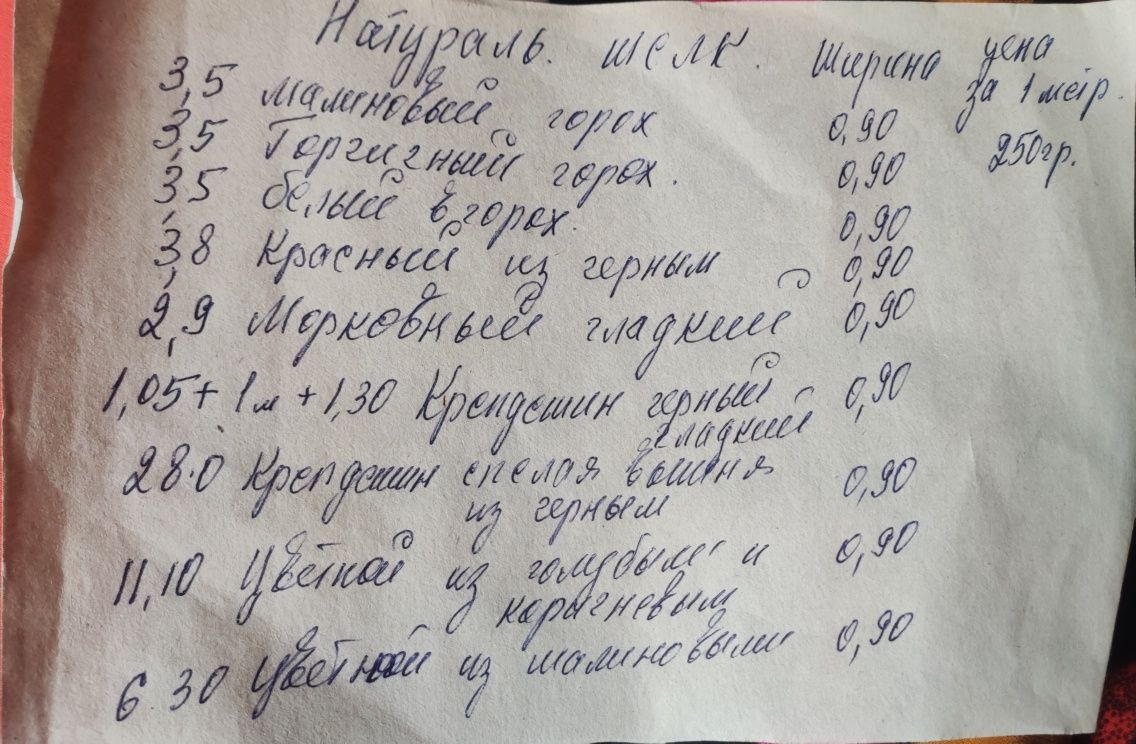 Натураль. шелк. Ширина цена
за 1 метр.
3,5 малиновый горох 0,90
250гр.
3,5 Горчичный горох. 0,90
3,5 белый в горох. 0,90
3,8 Красный из черным 0,90
2,9 Морковный гладкий 0,90
1,05 + 1м + 1,30 Крепдешин черный 0,90
гладкий
28.0 Крепдешин спелая вишня 0,90
из черным
11,10 Цветной из голубым и 0,90
коричневым
6.30 Цветной из малиновым 0,90